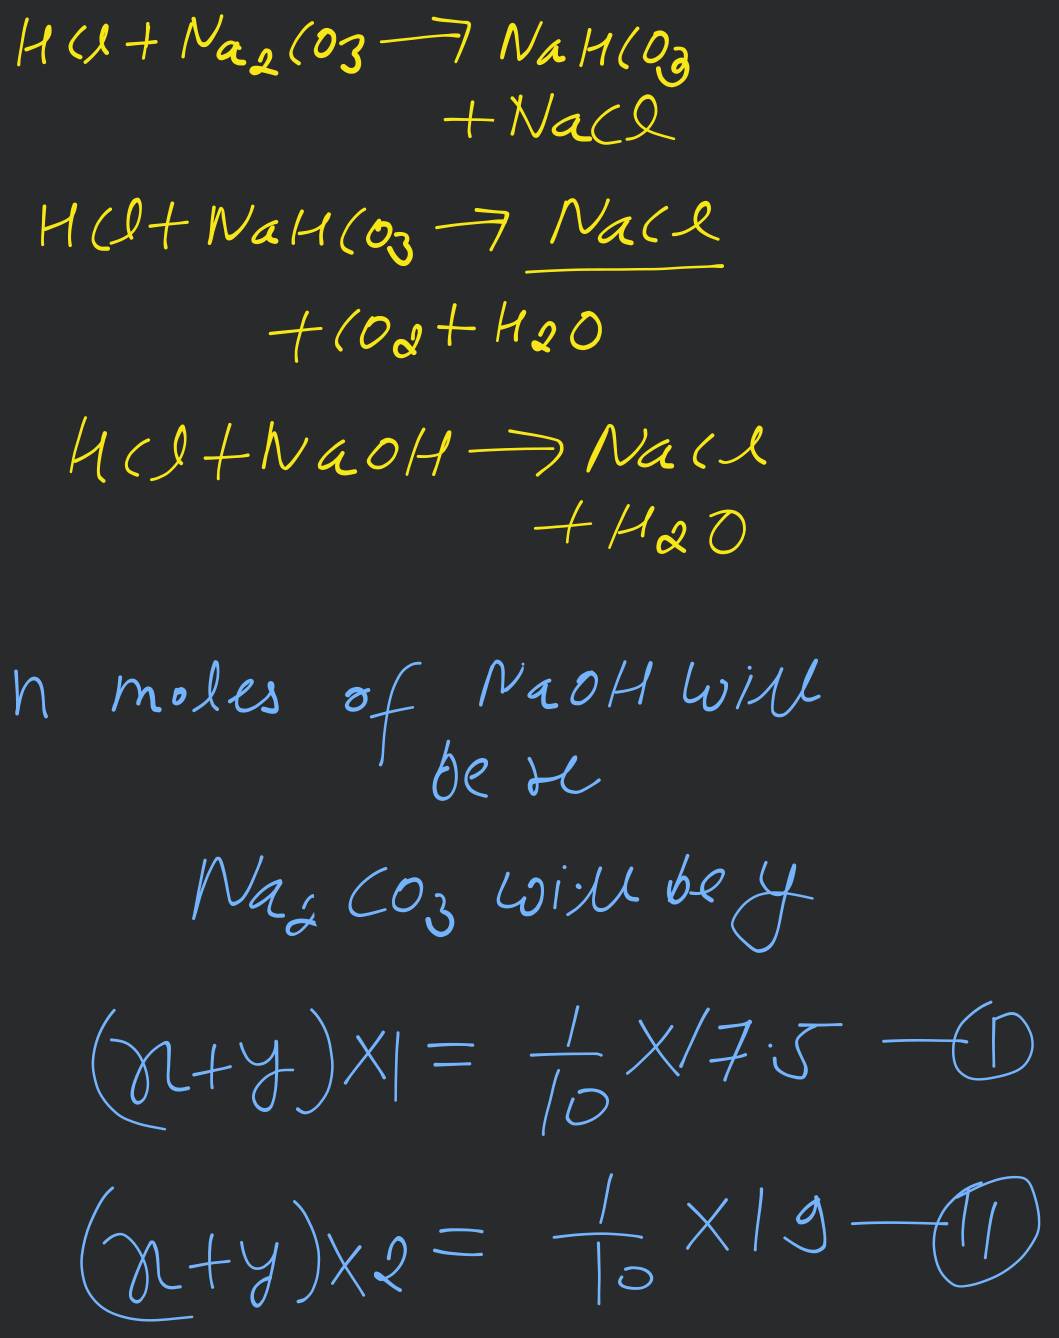 HCl + Na₂CO3 → NaHCO₃
+ NaCl
HCl + NaHCO₃ → NaCl
+ CO₂ + H₂O
HCl + NaOH → NaCl
+ H₂O
n moles of NaOH will
be x
Na₂CO₃ will be y
(x+y)×1 = 1/10 × 17.5 — Ⓘ
(x+y)×2 = 1/10 × 19 — Ⓘ Ⓘ